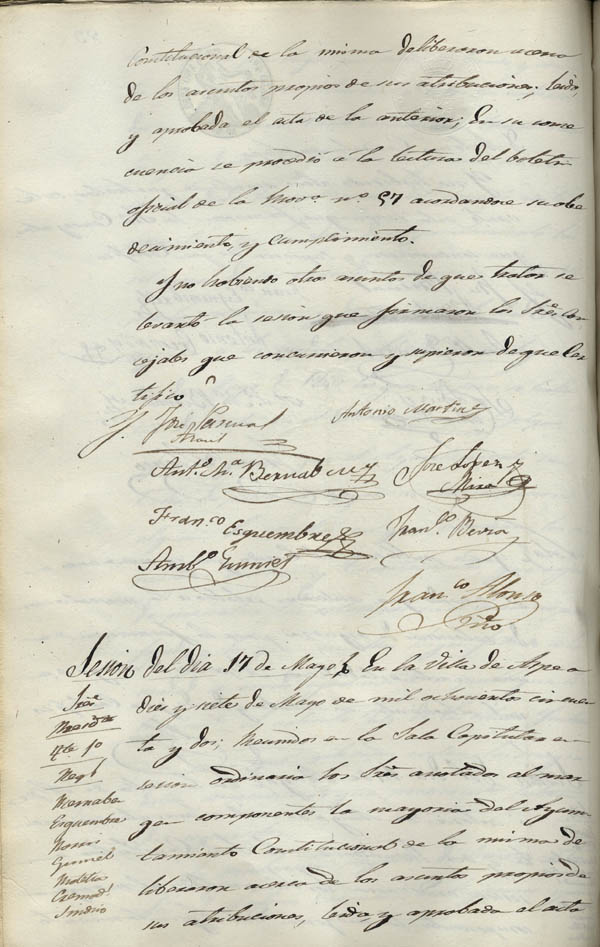 Constitucional de la misma deliberaron acerca
de los asuntos propios de sus atribuciones, leida,
y aprobada el acta de la anterior; En su conse
cuencia se procedió á la lectura del boletin
oficial de la Prov.ª n.º 57 acordandose su obe
decimiento, y cumplimiento.
Y no habiendo otros asuntos de que tratar se
levantó la sesion que firmaron los Sres Con
cejales que concurrieron y supieron de que cer
tifico
José Pascual
Antonio Martinez
Ant.º M.ª Bernabeu
José Lopez
Mira
Fran.co Esquembre
Fran.co Bevia
Amb.º Gumiel
Fran.co Alonso
Srio
Sesion del dia 17 de Mayo En la Villa de Aspe a
diez y siete de Mayo de mil ochocientos cincuen
ta y dos; Reunidos en la Sala Capitular en
sesion ordinaria los Sres anotados al mar
gen componentes la mayoria del Ayun
tamiento Constitucional de la misma de
liberaron acerca de los asuntos propios de
sus atribuciones, leida y aprobada el acta
Sres
Presid.te
Tte. 1º
Reg.s
Bernabeu
Esquembre
Gumiel
Cremad.s
Sindico